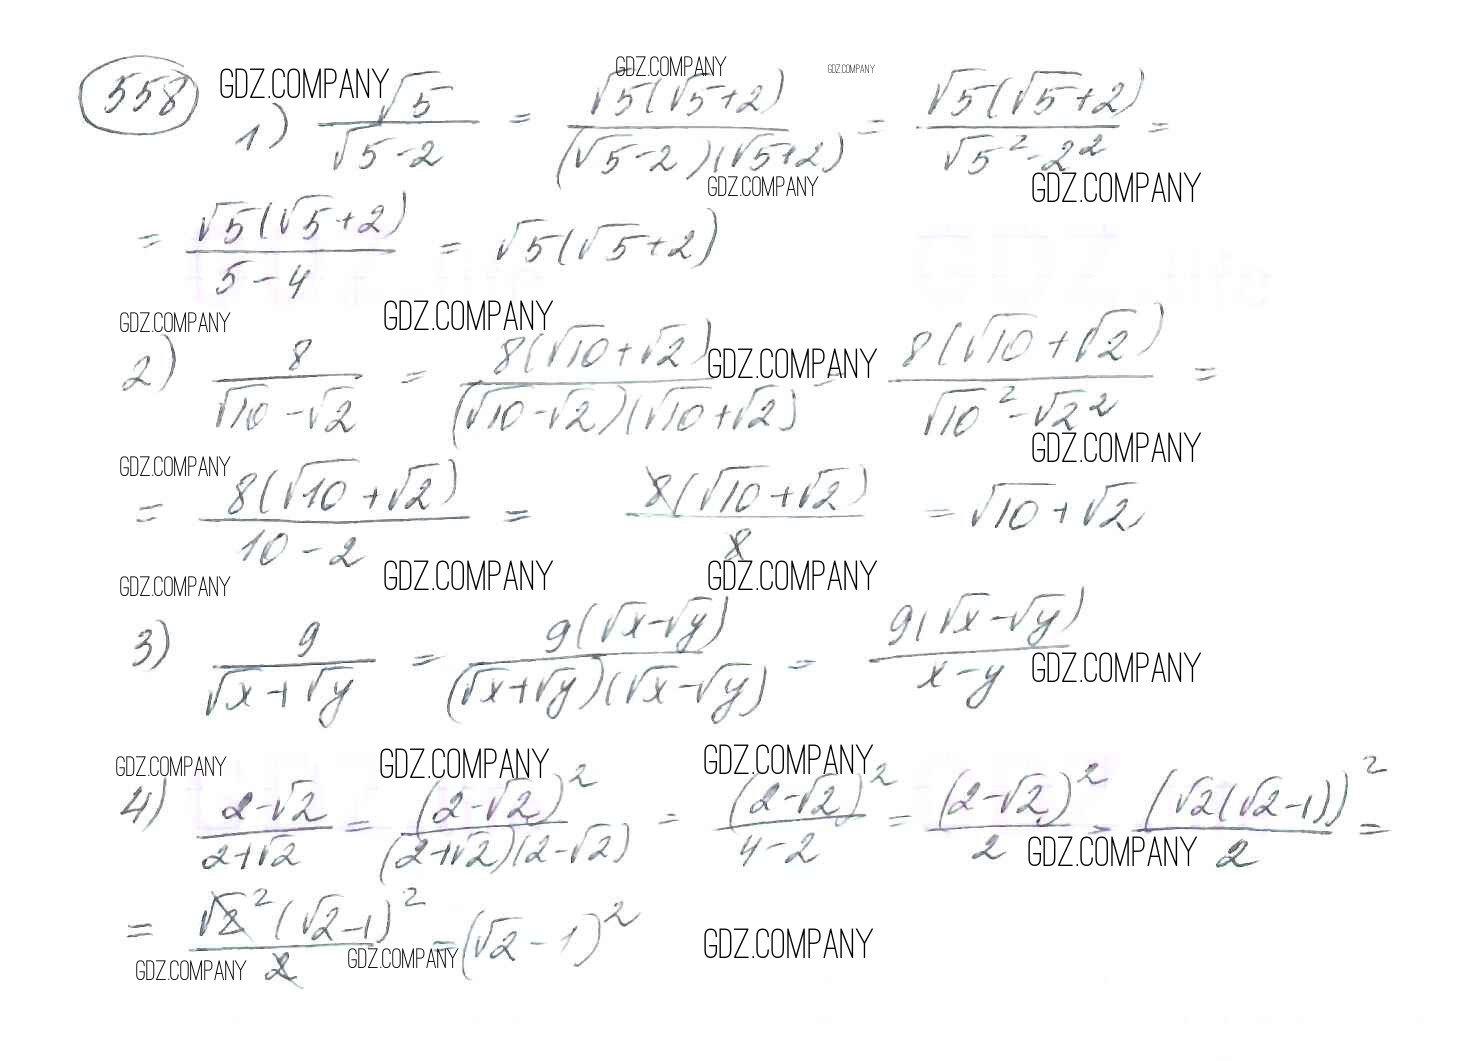 558 GDZ.COMPANY GDZ.COMPANY GDZ.COMPANY
1) √5/(√5-2) = √5(√5+2)/((√5-2)(√5+2)) = √5(√5+2)/(√5²-2²) =
GDZ.COMPANY GDZ.COMPANY
= √5(√5+2)/(5-4) = √5(√5+2)
GDZ.COMPANY GDZ.COMPANY
2) 8/(√10-√2) = 8(√10+√2)/((√10-√2)(√10+√2)) = 8(√10+√2)/(√10²-√2²) =
GDZ.COMPANY
GDZ.COMPANY
GDZ.COMPANY
= 8(√10+√2)/(10-2) = 8(√10+√2)/8 = √10+√2
GDZ.COMPANY GDZ.COMPANY GDZ.COMPANY
3) 9/(√x+√y) = 9(√x-√y)/((√x+√y)(√x-√y)) = 9(√x-√y)/(x-y)
GDZ.COMPANY
GDZ.COMPANY GDZ.COMPANY GDZ.COMPANY
4) (2-√2)/(2+√2) = (2-√2)²/((2+√2)(2-√2)) = (2-√2)²/(4-2) = (2-√2)²/2 = (√2(√2-1))²/2 =
GDZ.COMPANY
= √2²(√2-1)²/2 = (√2-1)²
GDZ.COMPANY GDZ.COMPANY GDZ.COMPANY